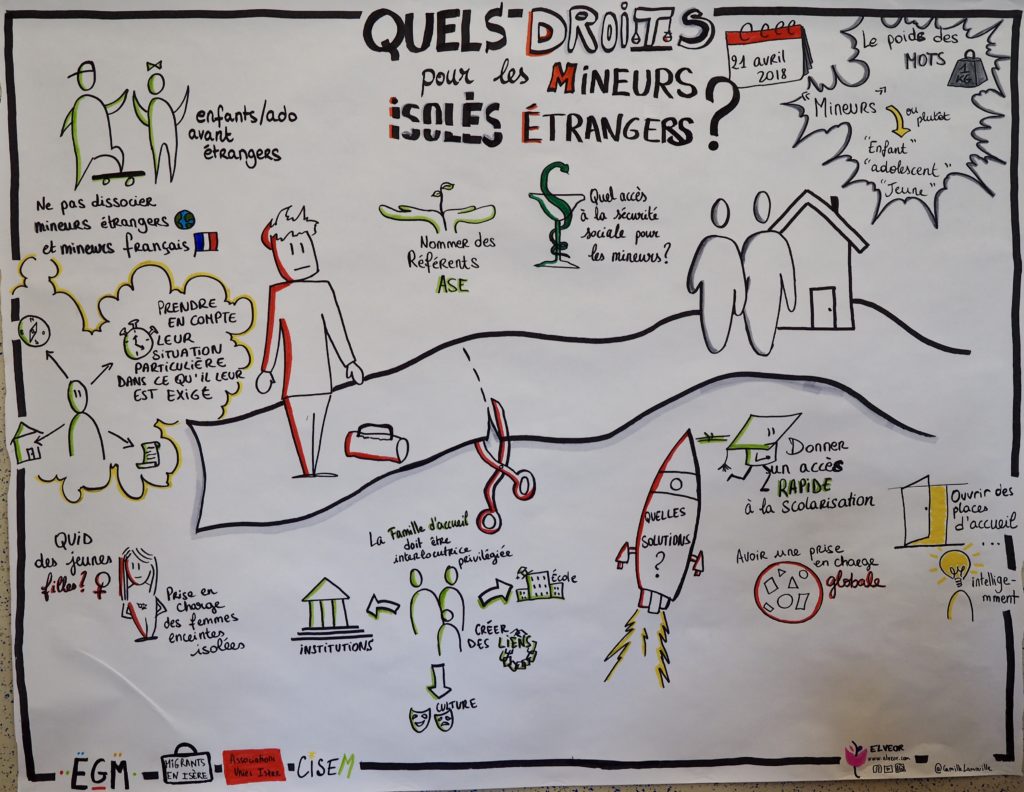 QUELS DROITS
pour les MINEURS
ISOLÉS ÉTRANGERS ?
21 avril
2018
Le poids des
MOTS
1
KG
"MINEURS"
ou
plutôt
"Enfant"
"adolescent"
"Jeune"
enfants/ado
avant
étrangers
Ne pas dissocier
mineurs étrangers
et mineurs français
PRENDRE
EN COMPTE
LEUR
SITUATION
PARTICULIÈRE
DANS CE QU'IL LEUR
EST EXIGÉ
Nommer des
Référents
ASE
Quel accès
à la sécurité
sociale pour
les mineurs?
QUID
des jeunes
filles?
Prise en
charge
des femmes
enceintes
isolées
La Famille d'accueil
doit être
interlocutrice privilégiée
INSTITUTIONS
École
CRÉER
DES LIENS
CULTURE
QUELLES
SOLUTIONS
?
Donner
un accès
RAPIDE
à la Scolarisation
Avoir une prise
en charge
globale
Ouvrir des
places
d'accueil
...
intellige-
mment
EGM
MIGRANTS
EN ISÈRE
Association
Isère
CISEM
ELVEOR
www.elveor.com